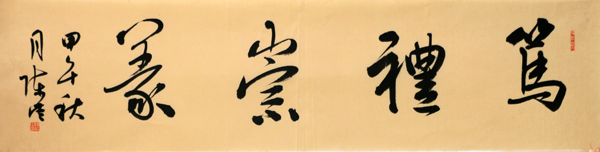 篤禮崇義
甲午秋
月陳